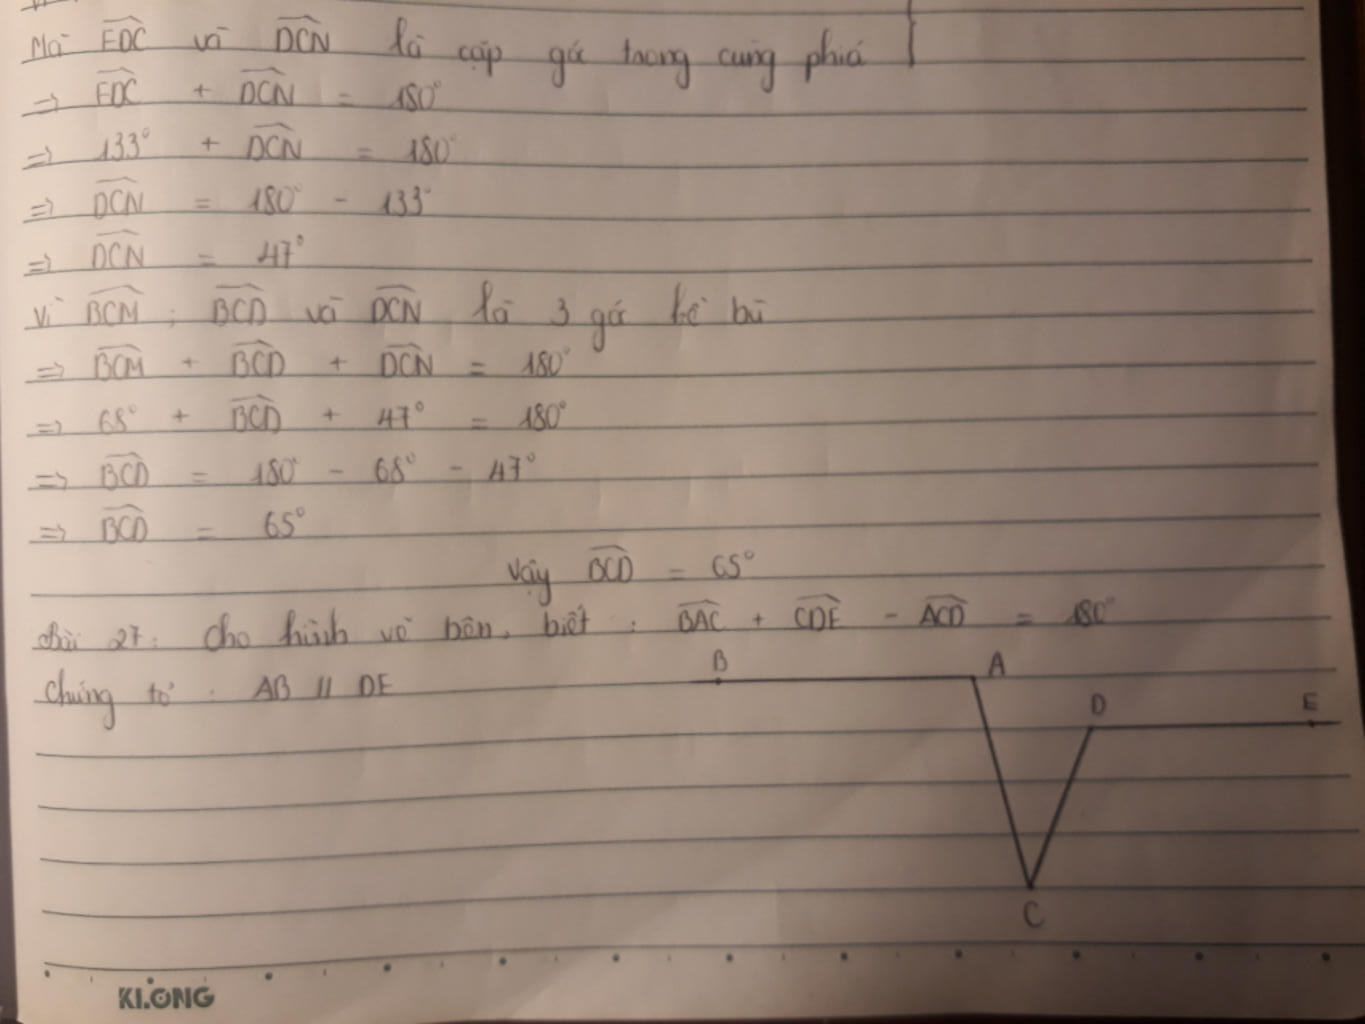 Mà EDC và DCN là cặp góc trong cùng phía
=> EDC + DCN = 180°
=> 133° + DCN = 180°
=> DCN = 180° - 133°
=> DCN = 47°
Vì BCM ; BCD và DCN là 3 góc kề bù
=> BCM + BCD + DCN = 180°
=> 68° + BCD + 47° = 180°
=> BCD = 180° - 68° - 47°
=> BCD = 65°
Vậy BCD = 65°
Bài 27: Cho hình vẽ bên, biết : BAC + CDE - ACD = 180°
Chứng tỏ : AB // DE
B A
D E
C
KLONG